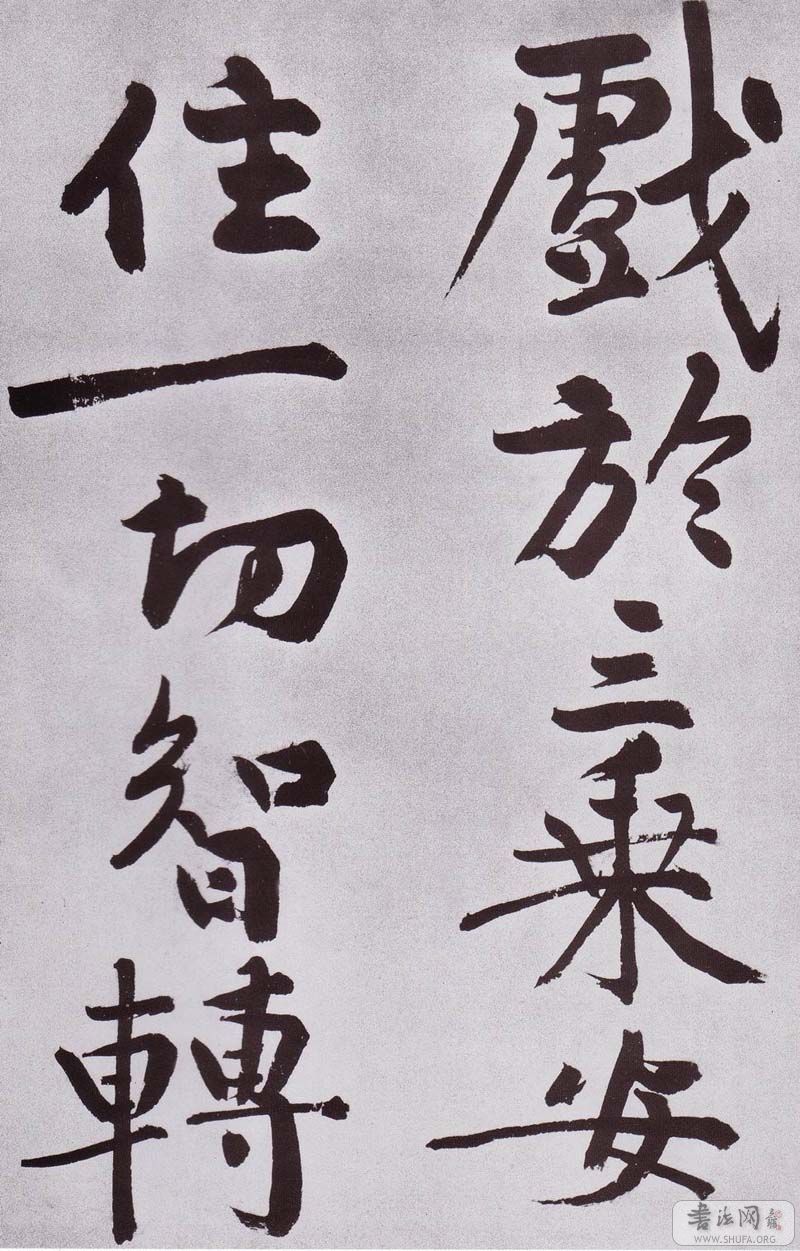 戲於三乗安
住一切智轉
書法网
WWW.SHUFA.ORG